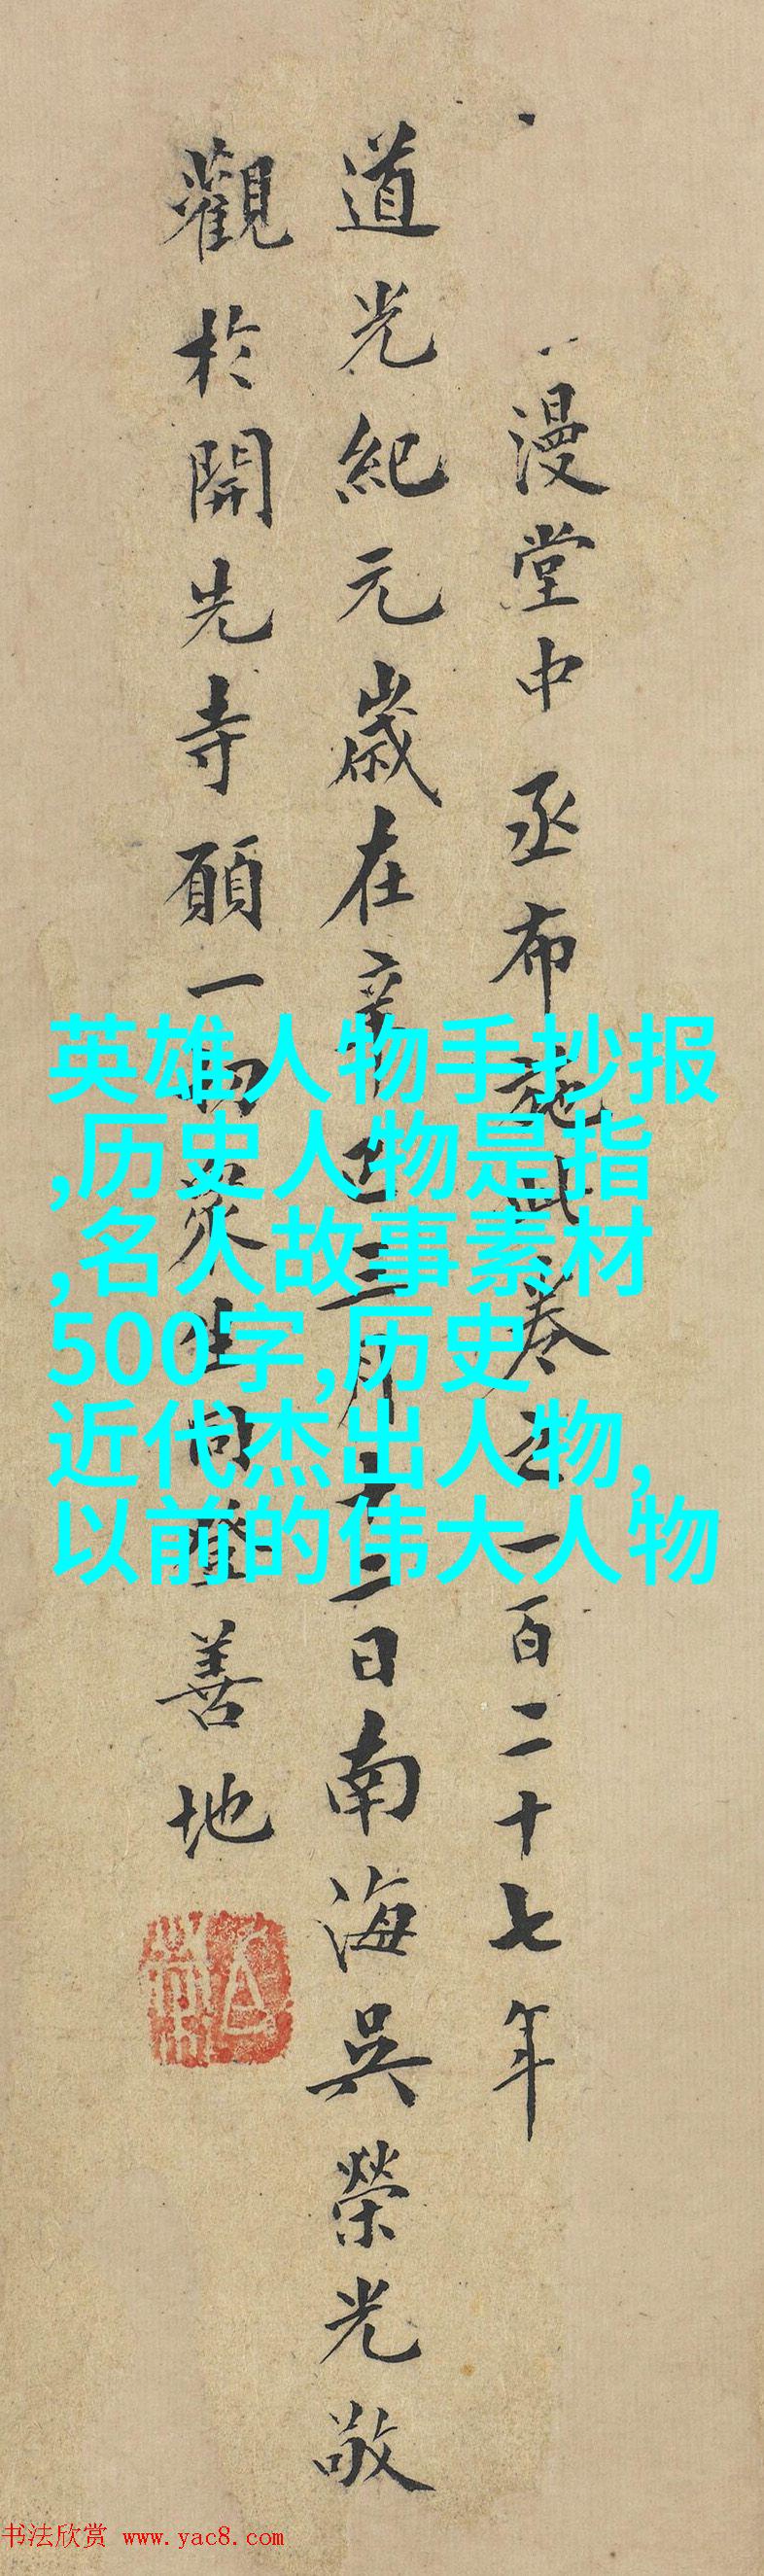 漫堂中丞布施此卷之一百二十七年
道光紀元歲在辛巳三月十二日南海吳榮光敬
觀於開先寺願一切眾生同登善地
英雄人物手抄报
,历史人物是指
,名人故事素材
500字,历史
近代杰出人物,
以前的伟大人物
书法欣赏 www.yac8.com